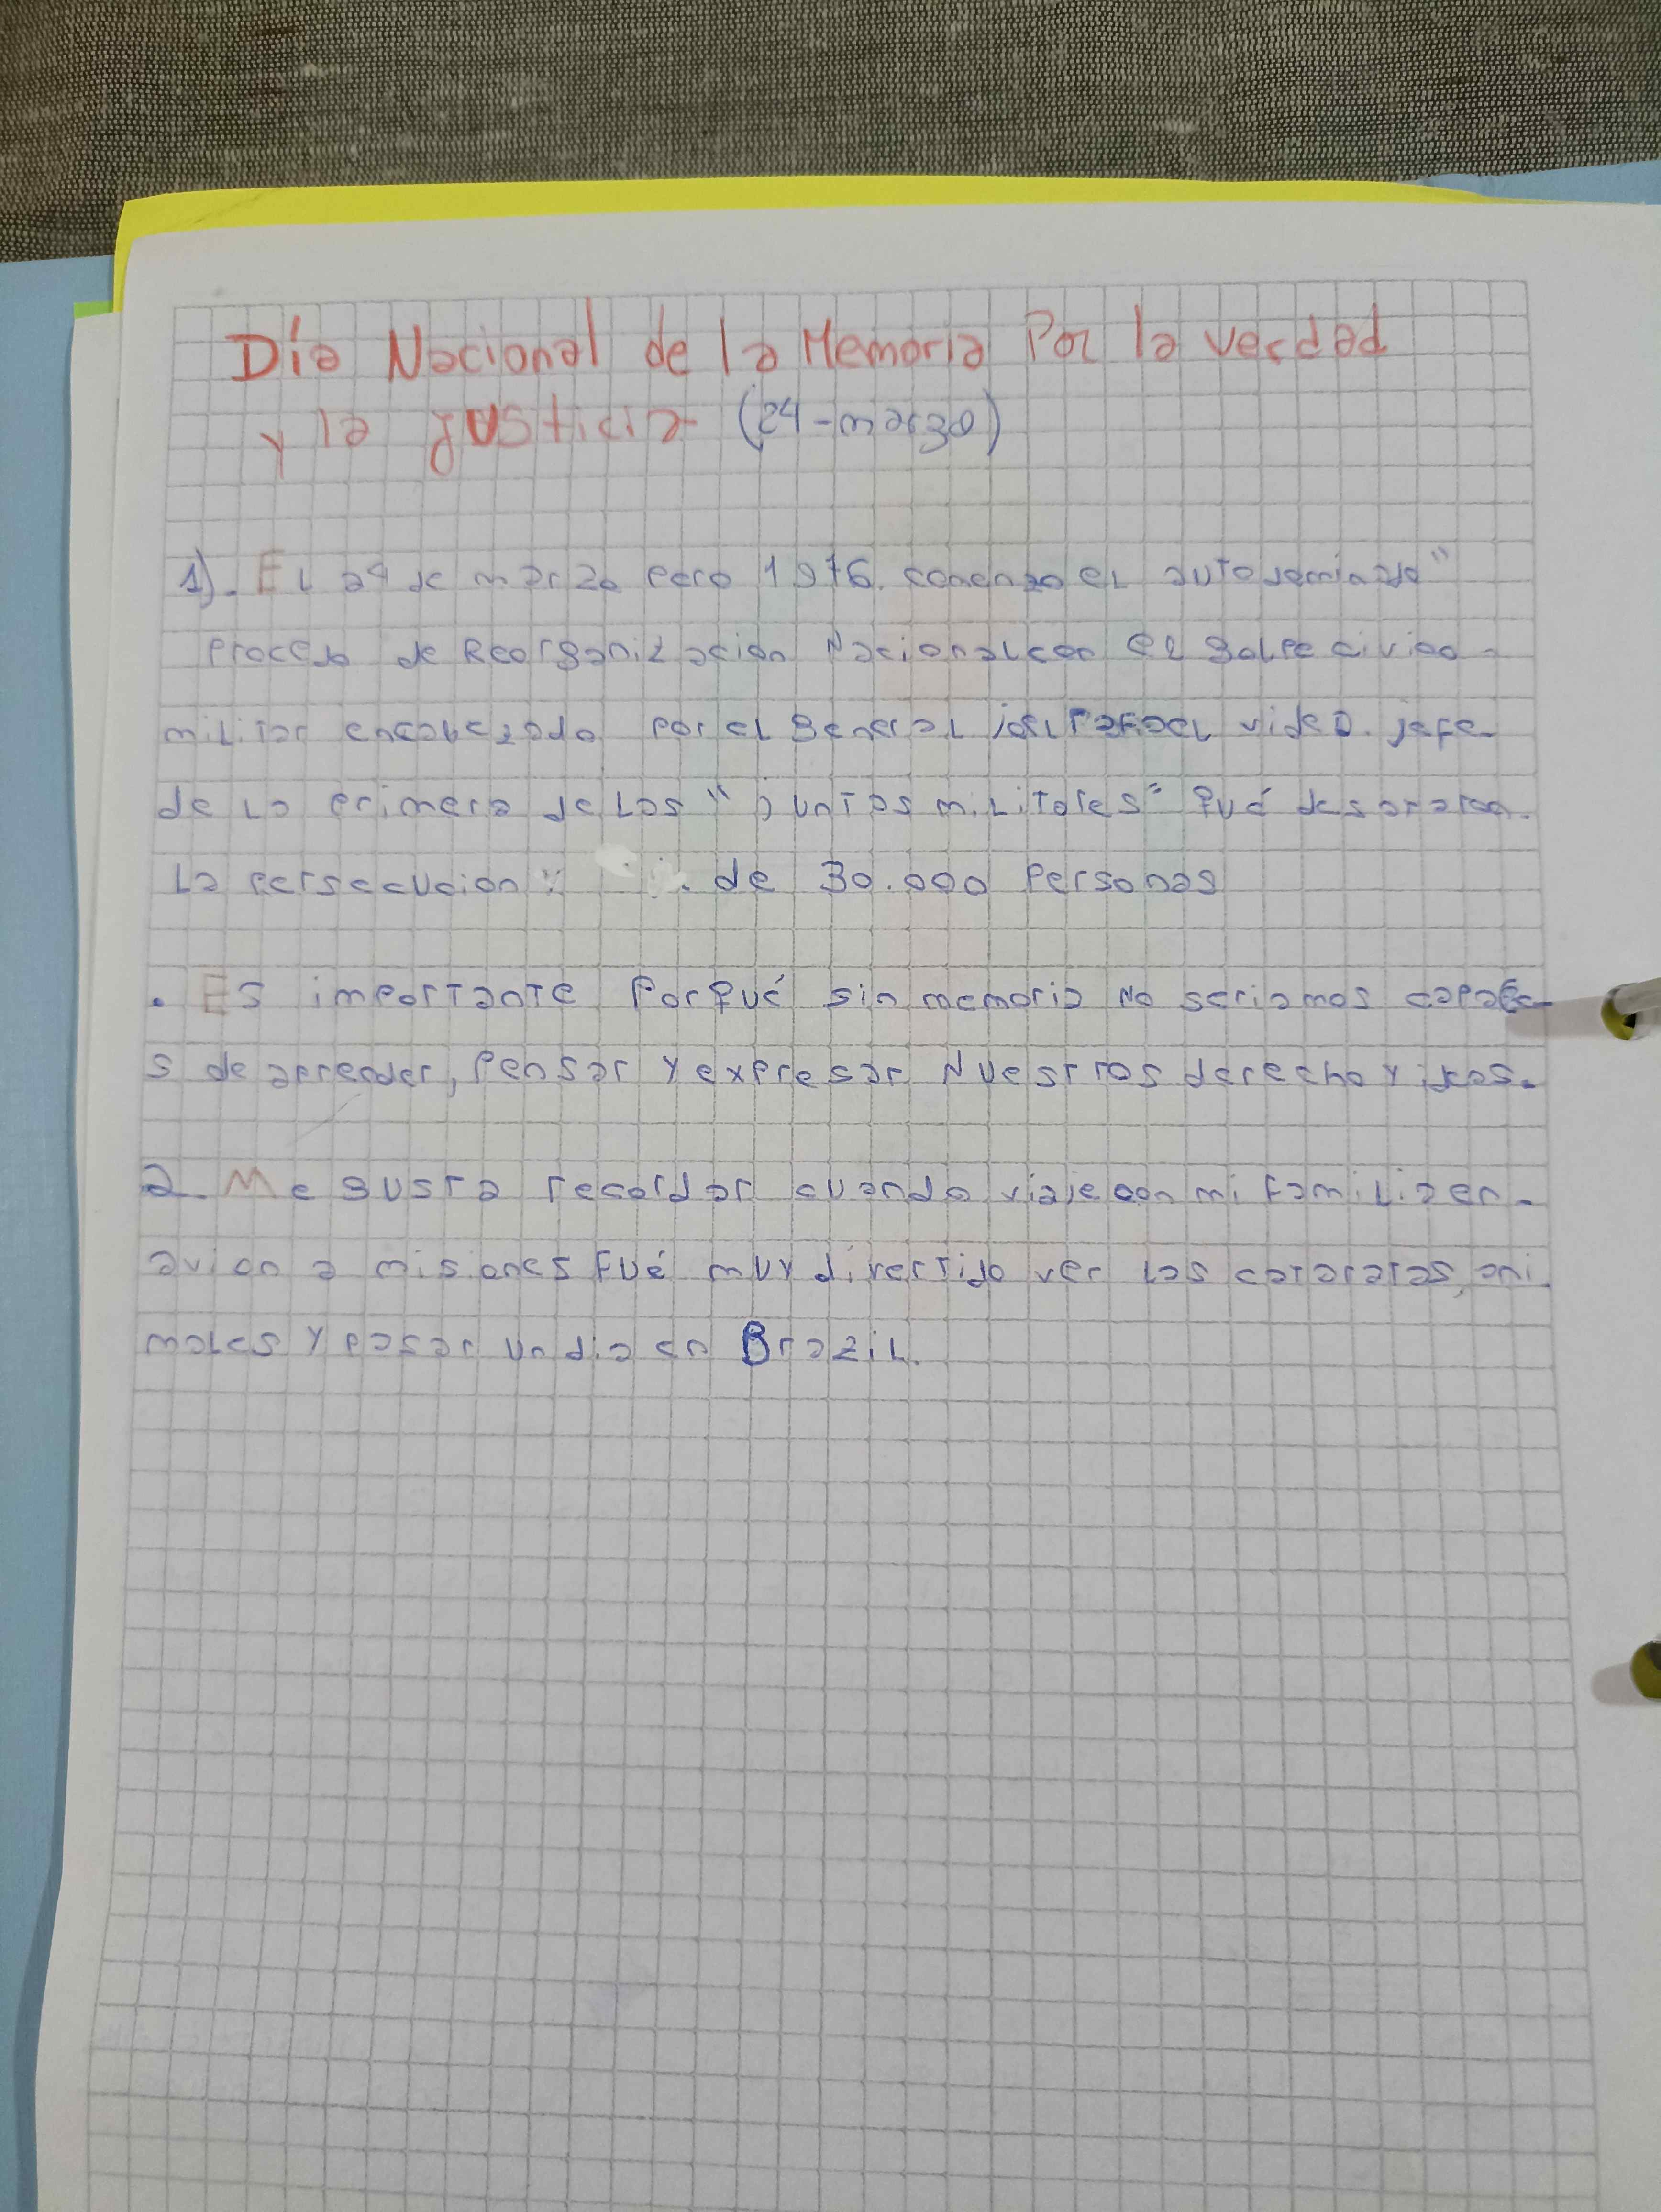 Día Nacional de la Memoria Por la verdad
y la justicia (24-marzo)
1). El 24 de marzo pero 1976. comenzo el autodenominado"
Proceso de Reorganización Nacional con el golpe civico-
militar encabezado por el general Rafael vide D. jefe
de la primera de las "juntas militares" Fué
La persecucion y de 30.000 Personas
. Es importante Porqué sin memoria No seriamos capace-
s de aprender, Pensar y expresar Nuestros derecho y
2. Me gusta recordar cuando viaje con mi familia en
avion a misiones Fué muy divertido ver las cataratas, ani
males y pasar un dia en Brazil.